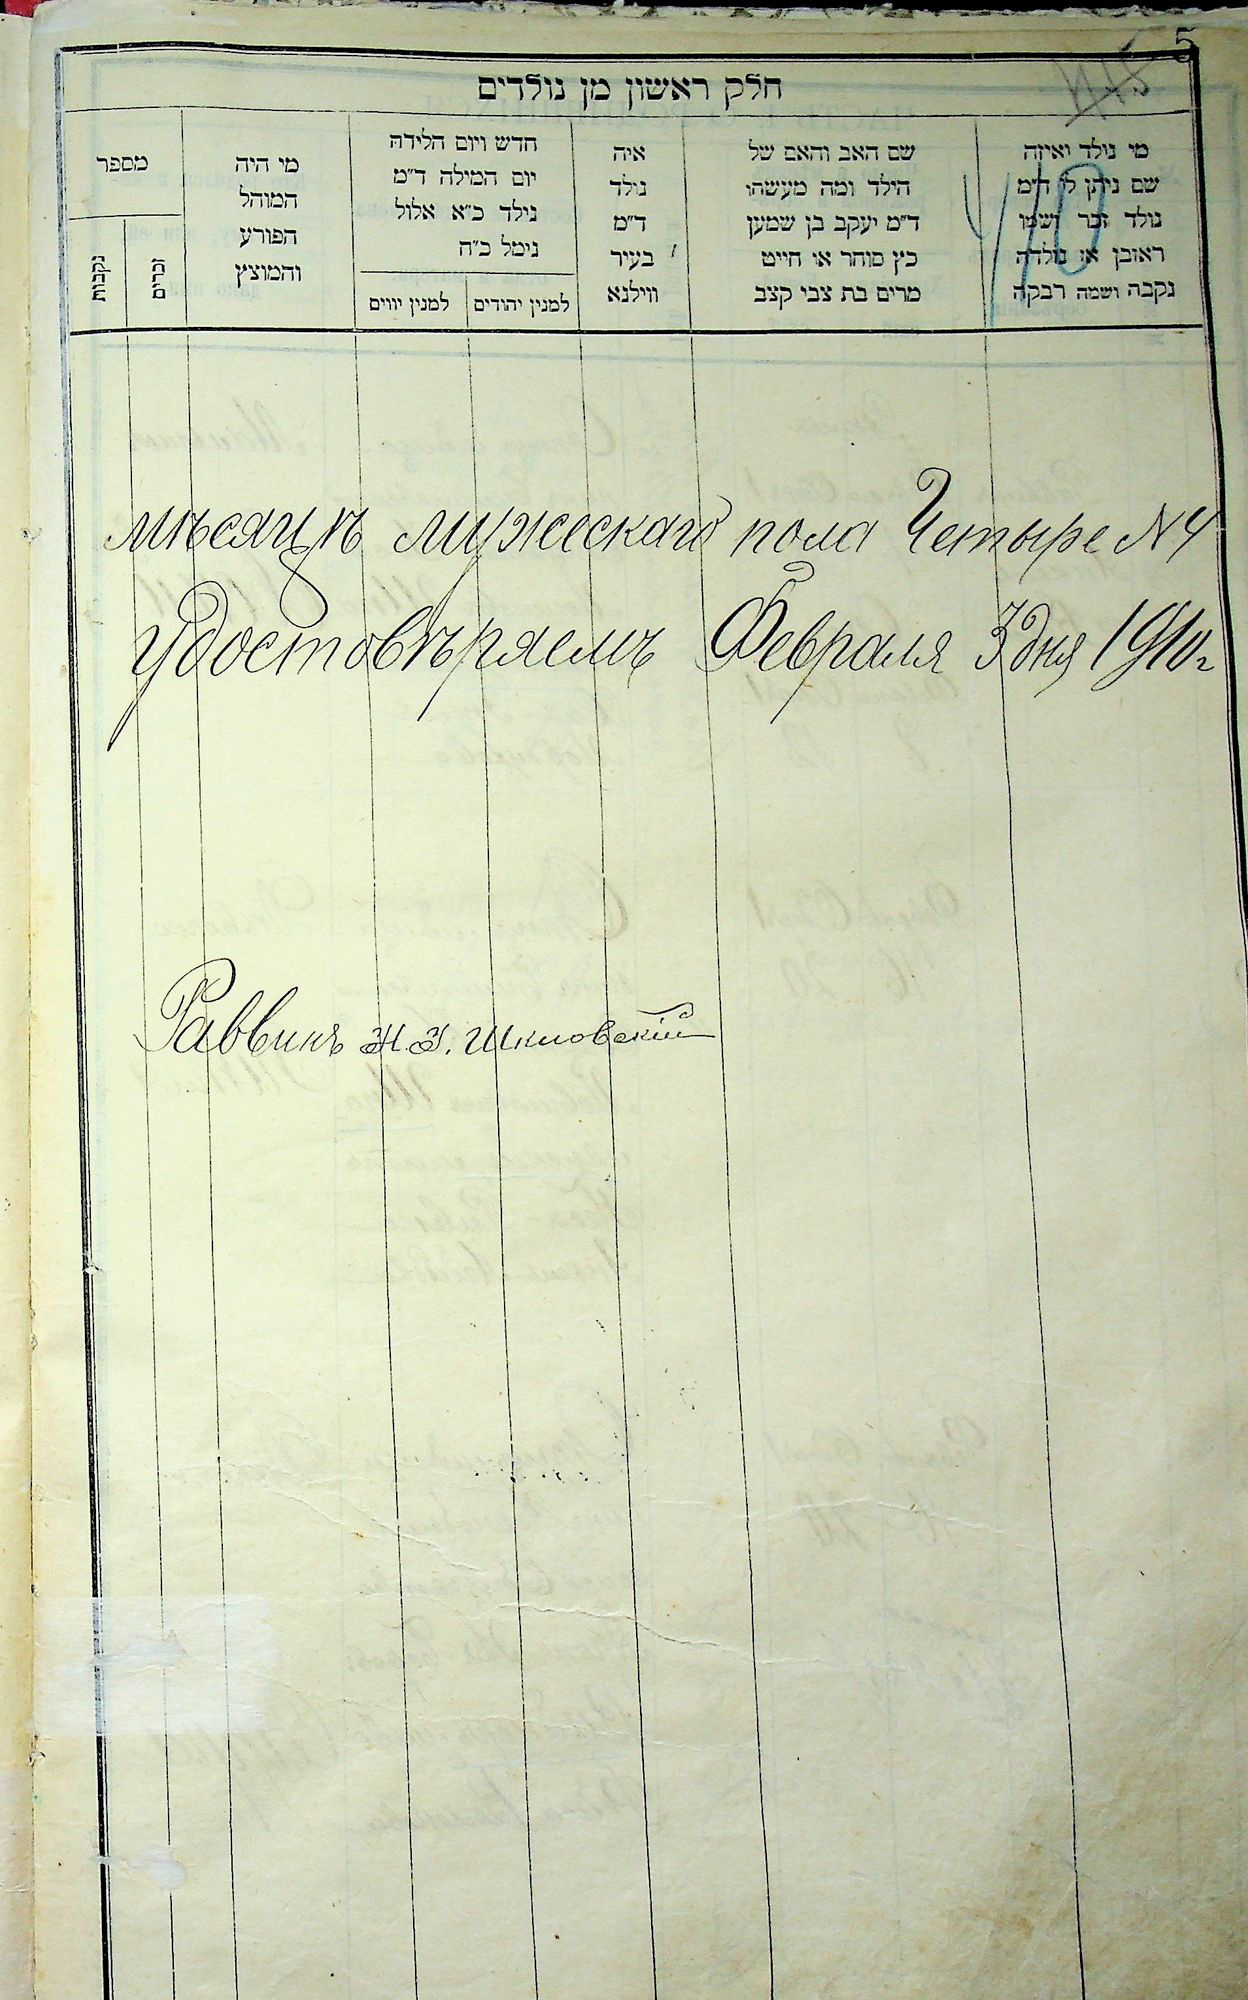 5
חלק ראשון מן נולדים
מי נולד ואיזה
שם ניתן לו ד״מ
נולד זכר ושמו
ראובן או נולדה
נקבה ושמה רבקה
110
שם האב והאם של
הילד ומה מעשהו
ד״מ יעקב בן שמעון
כץ סוחר או חייט
מרים בת צבי קצב
איה
נולד
ד״מ
בעיר
ווילנא
חדש ויום הלידה
יום המילה ד״מ
נילד כ״א אלול
נימל כ״ח
למנין יהודים
למנין יווים
מי היה
המוהל
הפורע
והמוצץ
מספר
זכרים
נקבות
мѣсяцѣ мужескаго пола Четыре N 4
удостовѣряемъ Февраля 3 дня 1910 г
Раввинъ Н. З. Шкловскій